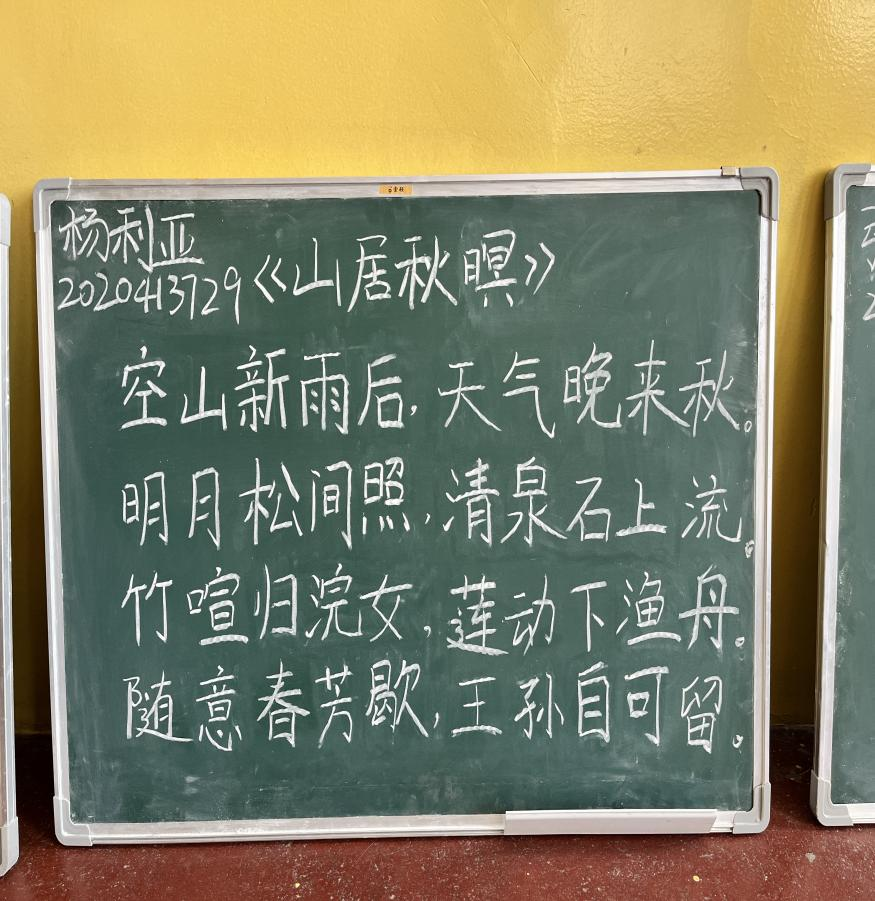 杨利亚
2020413729《山居秋暝》
空山新雨后,天气晚来秋。
明月松间照,清泉石上流。
竹喧归浣女,莲动下渔舟。
随意春芳歇,王孙自可留。